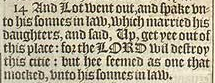 14 And Lot went out, and spake vn-
to his sonnes in law, which married his
daughters, and said, Up, get yee out of
this place: for the LORD wil destroy
this citie: but hee seemed as one that
mocked, vnto his sonnes in law.